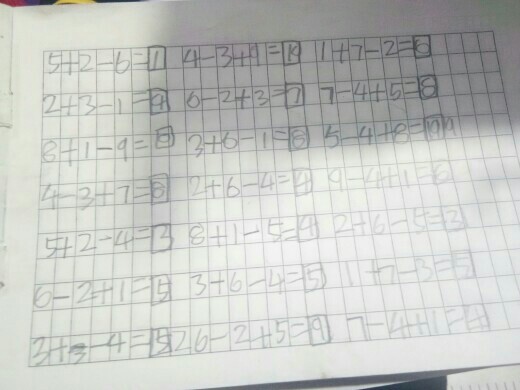 5+2-6=1 4-3+9=10 1+7-2=6
2+3-1=4 6-2+3=7 7-4+5=8
8+1-9=0 3+6-1=8 5-4+8=9
4-3+7=8 2+6-4=4 9-4+1=6
5+2-4=3 8+1-5=4 2+6-5=3
6-2+1=5 3+6-4=5 1+7-3=5
6-2+5=9 7-4+1=4